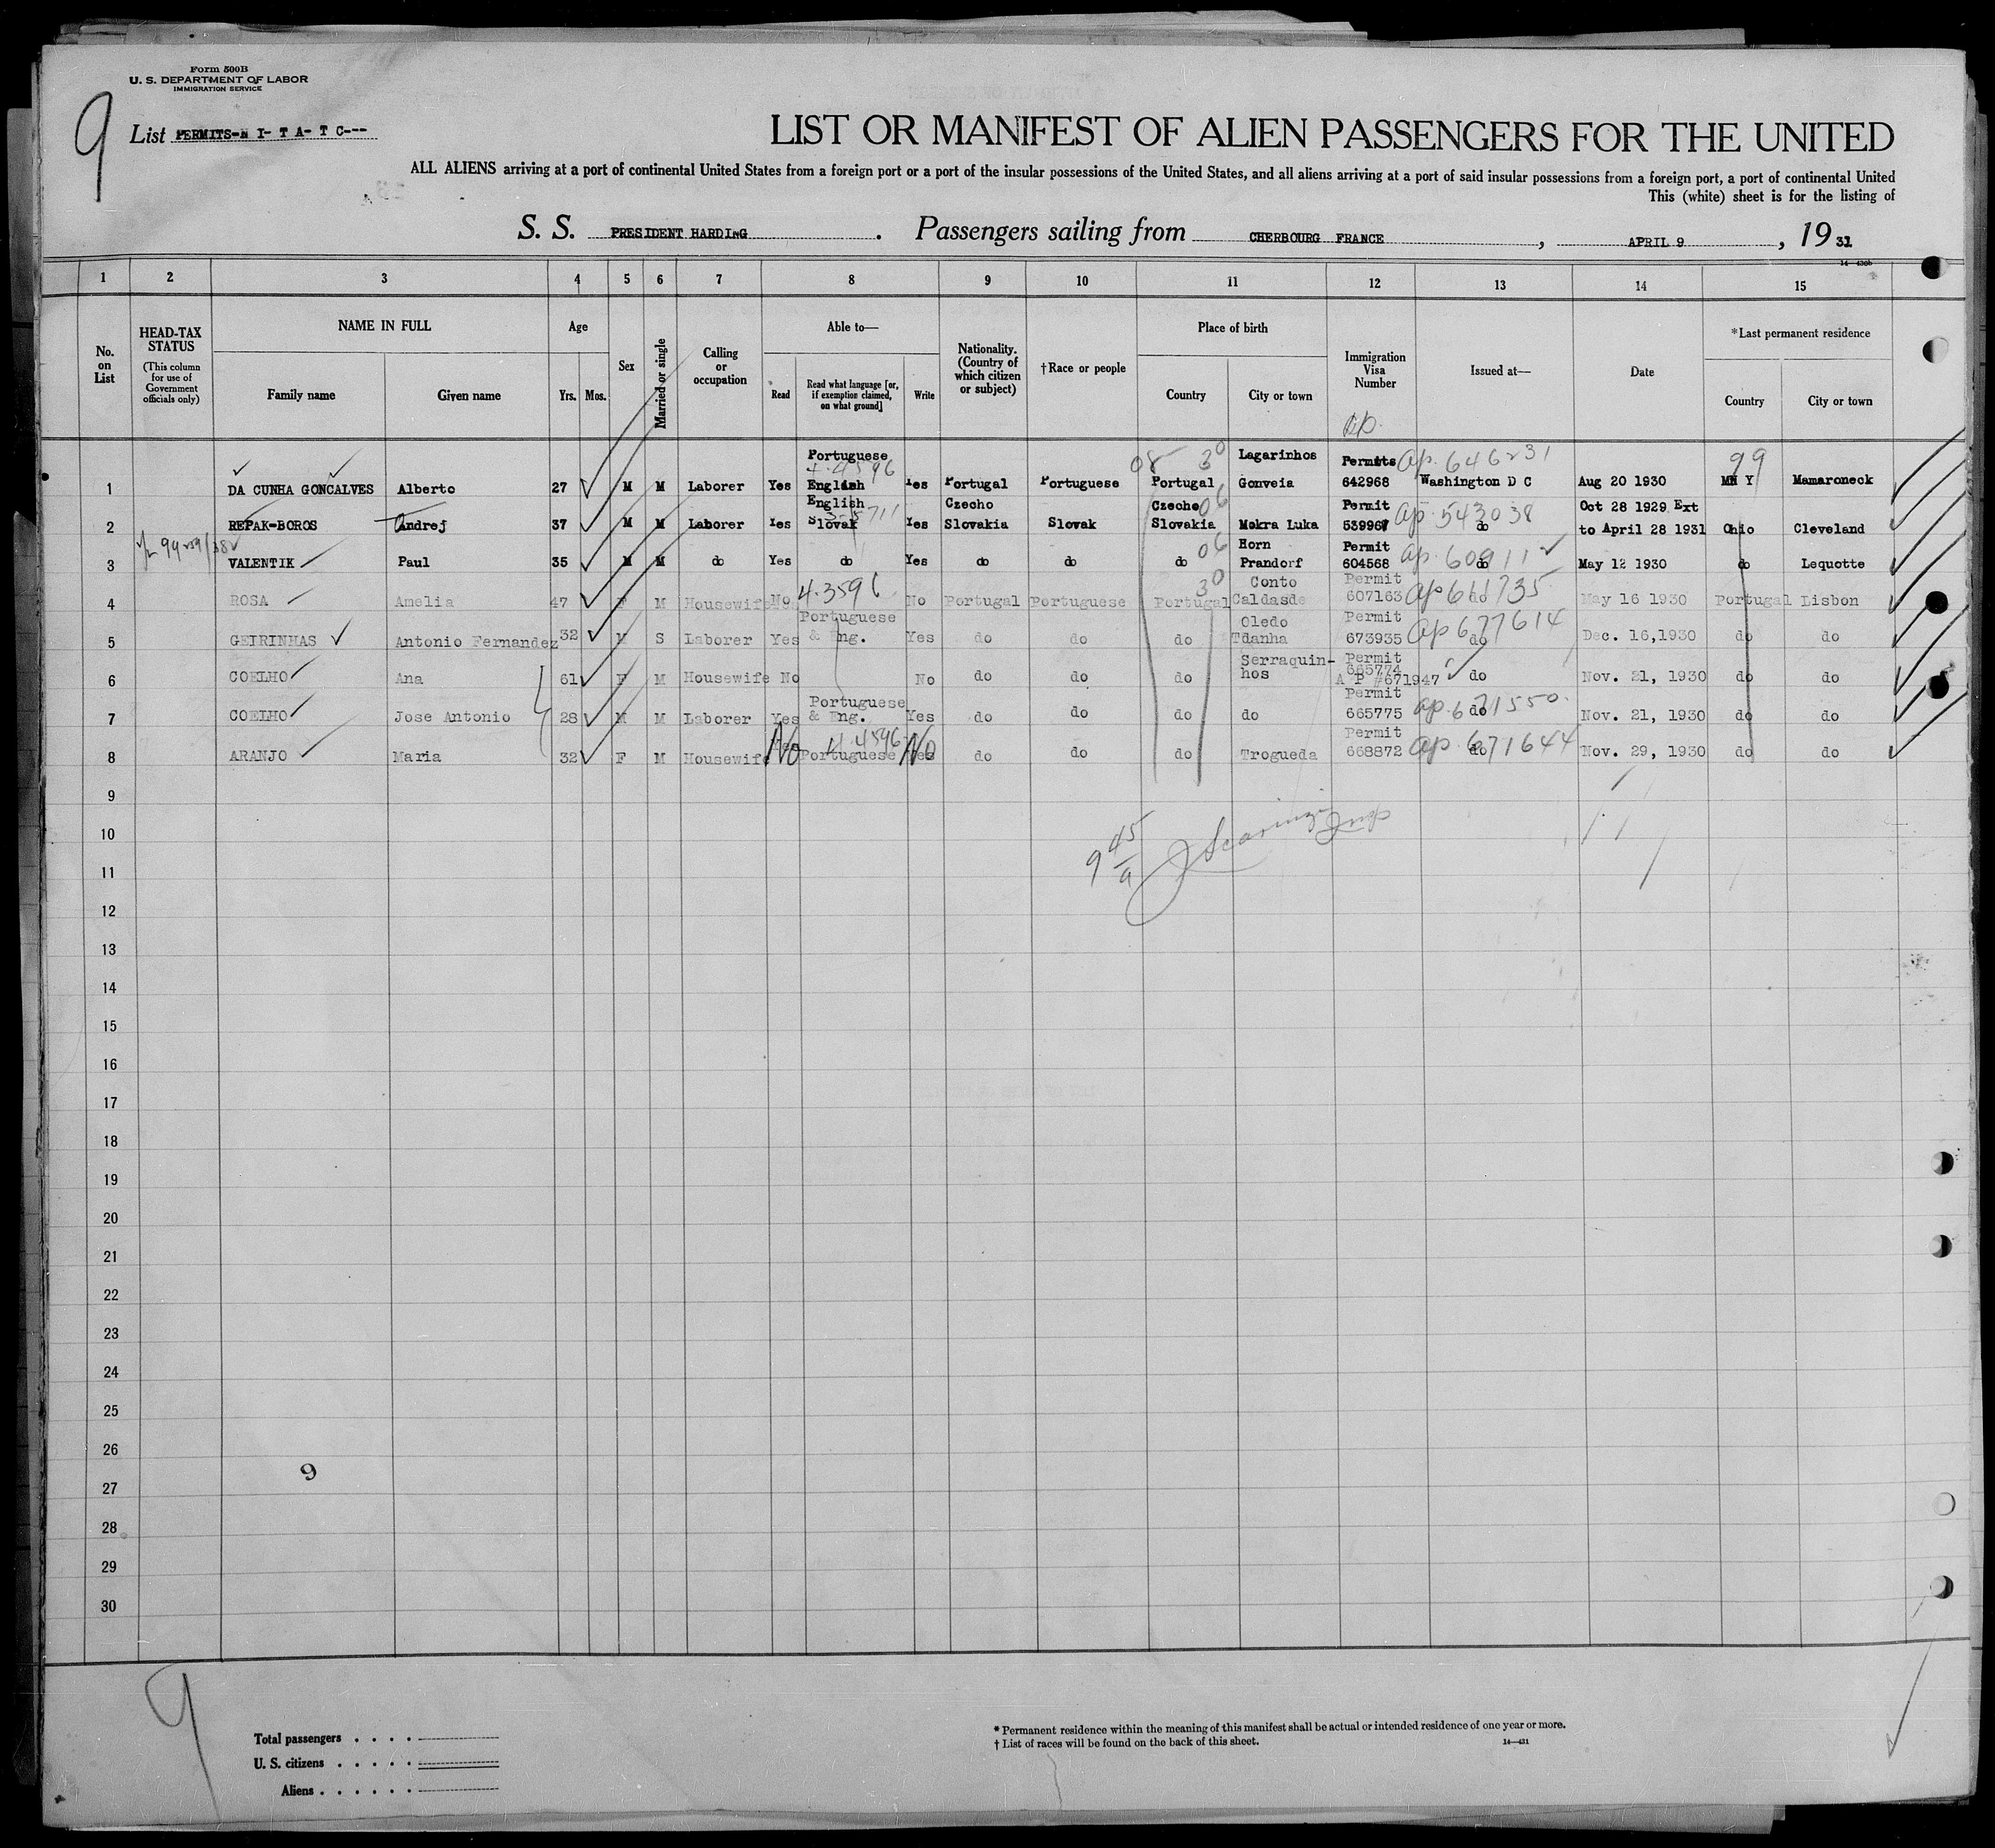 Form 500B
U. S. DEPARTMENT OF LABOR
IMMIGRATION SERVICE
9
List PERMITS-N I- T A- T C---
LIST OR MANIFEST OF ALIEN PASSENGERS FOR THE UNITED
ALL ALIENS arriving at a port of continental United States from a foreign port or a port of the insular possessions of the United States, and all aliens arriving at a port of said insular possessions from a foreign port, a port of continental United
This (white) sheet is for the listing of
S. S. PRESIDENT HARDING . Passengers sailing from CHERBOURG FRANCE , APRIL 9 , 19 31
1 2 3 4 5 6 7 8 9 10 11 12 13 14 15
No. on List
HEAD-TAX STATUS
(This column for use of Government officials only)
NAME IN FULL
Family name Given name
Age
Yrs. Mos.
Sex
Married or single
Calling or occupation
Able to—
Read
Read what language [or, if exemption claimed, on what ground]
Write
Nationality. (Country of which citizen or subject)
†Race or people
Place of birth
Country City or town
Immigration Visa Number
Issued at—
Date
*Last permanent residence
Country City or town
Portuguese Lagarinhos Permits ap. 646231 99
1 DA CUNHA GONCALVES Alberto 27 M M Laborer Yes English Yes Portugal Portuguese Portugal Gonveia 642968 Washington D C Aug 20 1930 N Y Mamaroneck
English Czecho Czecho 06 Permit Oct 28 1929 Ext
2 REPAK-BOROS Andrej 37 M M Laborer Yes Slovak Yes Slovakia Slovak Slovakia Mokra Luka 539967 ap 543038 do to April 28 1931 Ohio Cleveland
06 Horn Permit
3 VALENTIK Paul 35 M M do Yes do Yes do do do Prandorf 604568 do May 12 1930 do Lequotte
30 Conto Permit
4 ROSA Amelia 47 F M Housewife No 4-3596 No Portugal Portuguese Portugal Caldasde 607163 May 16 1930 Portugal Lisbon
Portuguese Oledo Permit
5 GEIRINHAS Antonio Fernandez 32 M S Laborer Yes & Eng. Yes do do do Tdanha 673935 ap 677614 do Dec. 16,1930 do do
Serraquin- Permit
665774
6 COELHO Ana 61 F M Housewife No No do do do hos A P #671947 do Nov. 21, 1930 do do
Portuguese Permit
7 COELHO Jose Antonio 28 M M Laborer Yes & Eng. Yes do do do do 665775 ap. 671550 do Nov. 21, 1930 do do
Permit
8 ARANJO Maria 32 F M Housewife No Portuguese No do do do Trogueda 668872 ap 671644 do Nov. 29, 1930 do do
9
10
11
12
13
14
15
16
17
18
19
20
21
22
23
24
25
26
9
27
28
29
30
9
Total passengers . . . .
U. S. citizens . . . . .
Aliens . . . . . .
* Permanent residence within the meaning of this manifest shall be actual or intended residence of one year or more.
† List of races will be found on the back of this sheet.
14—431